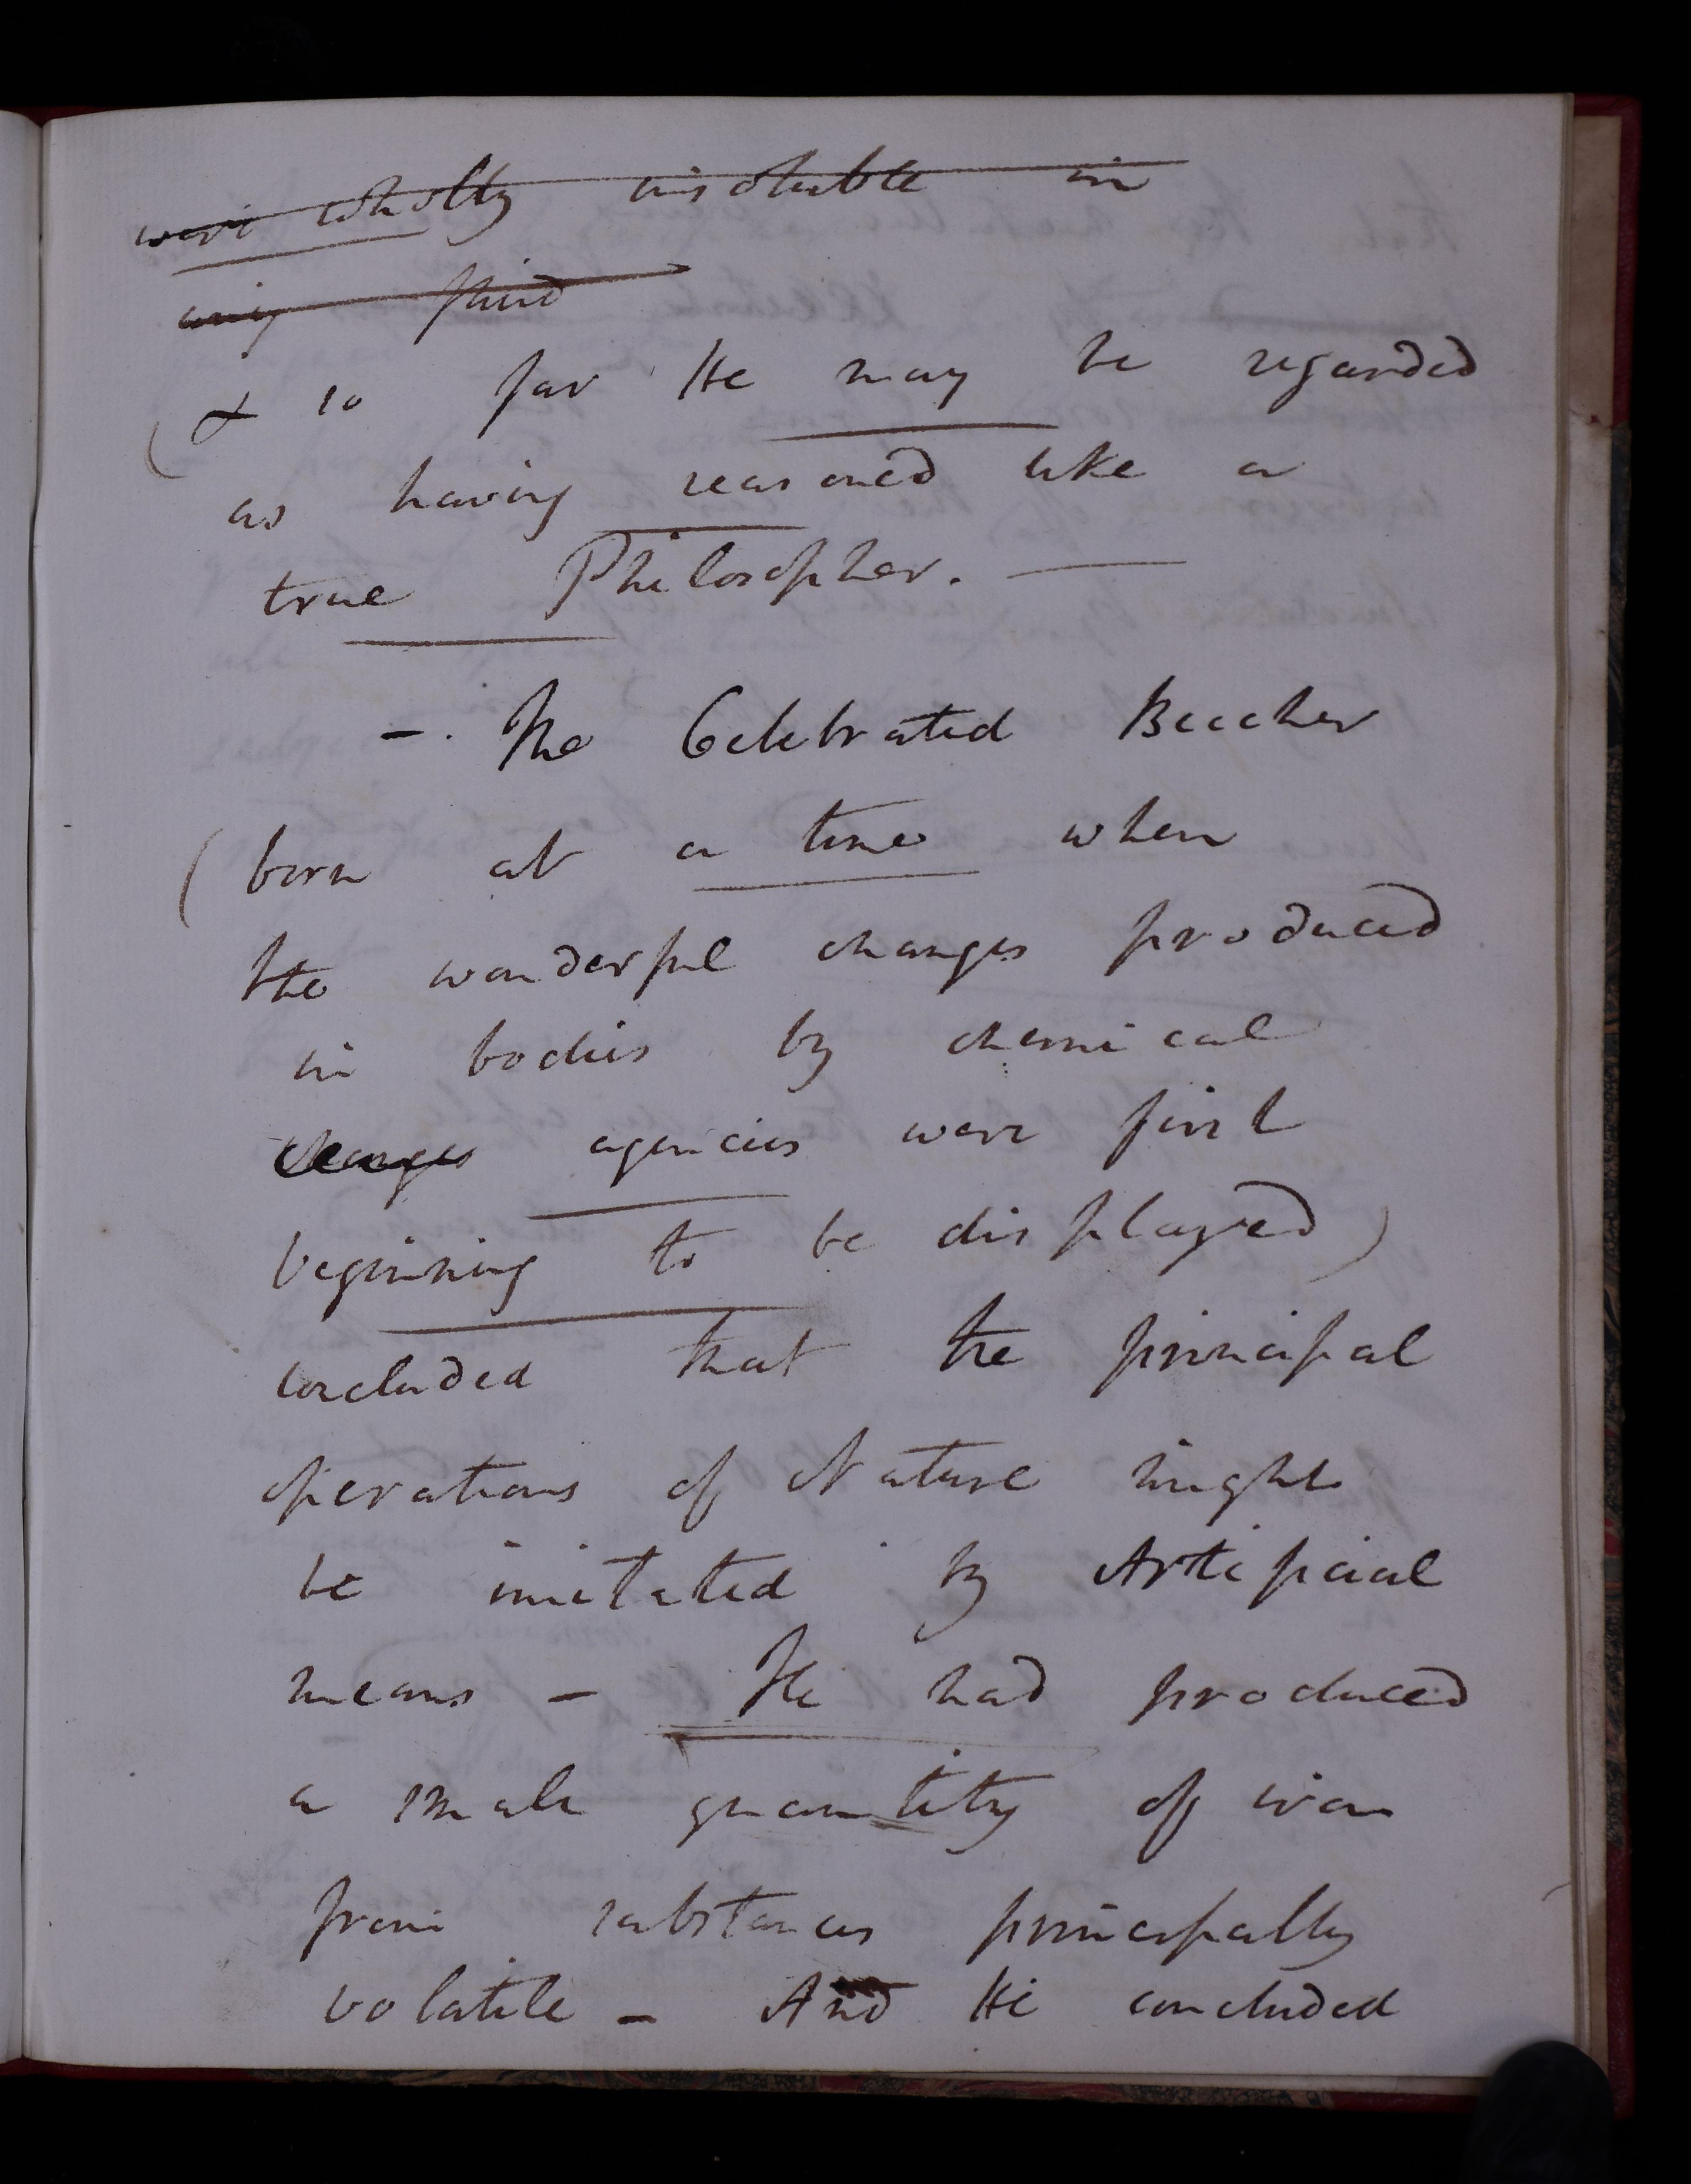 were wholly insoluble in
any fluid
& so far He may be regarded
as having reasoned like a
true Philosopher. —
-. The Celebrated Beccher
(born at a time when
the wonderful changes produced
in bodies by chemical
changes agencies were first
beginning to be displayed)
concluded that the principal
operations of Nature might
be imitated by Artificial
means - He had produced
a small quantity of iron
from substances principally
volatile - And He concluded